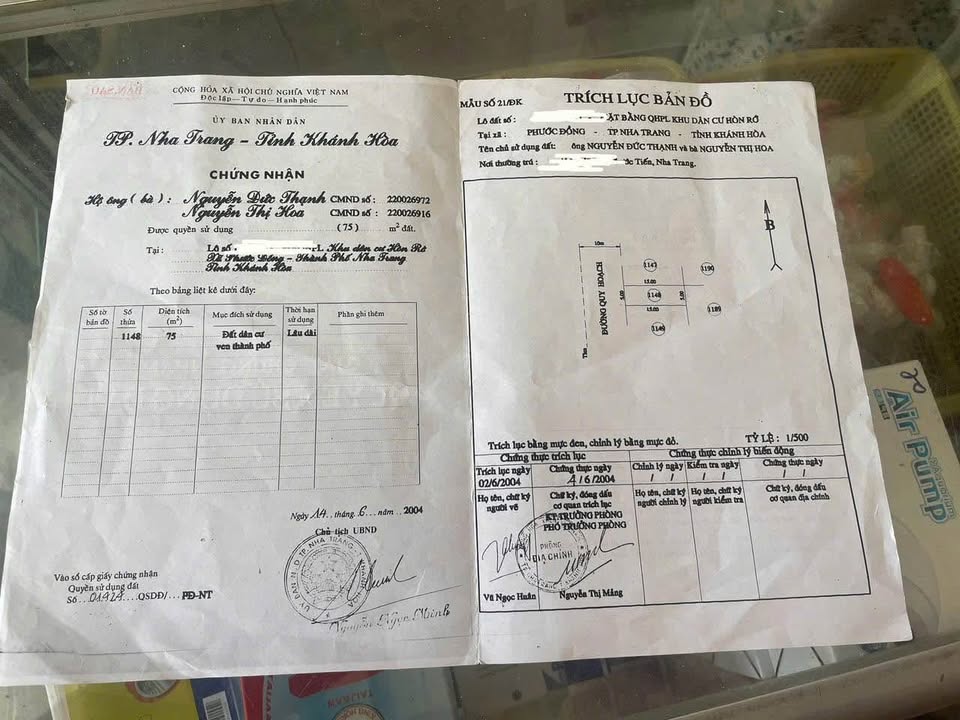 BẢN SAO
CỘNG HÒA XÃ HỘI CHỦ NGHĨA VIỆT NAM
Độc lập - Tự do - Hạnh phúc
ỦY BAN NHÂN DÂN
TP. Nha Trang - Tỉnh Khánh Hòa
CHỨNG NHẬN
Hộ ông ( bà ) : Nguyễn Đức Thạnh CMND số : 220026972
Nguyễn Thị Hoa CMND số : 220026916
Được quyền sử dụng (75) m² đất.
Tại : Lô số QHPL Khu dân cư Hòn Rớ
Xã Phước Đồng - Thành Phố Nha Trang
Tỉnh Khánh Hòa
Theo bảng liệt kê dưới đây:
Số tờ bản đồ Số thửa Diện tích (m²) Mục đích sử dụng Thời hạn sử dụng Phần ghi thêm
1148 75 Đất dân cư ven thành phố Lâu dài
Ngày 14 tháng 6 năm 2004
Chủ tịch UBND
ỦY BAN N.D TP NHA TRANG
Nguyễn Ngọc Minh
Vào sổ cấp giấy chứng nhận
Quyền sử dụng đất
Số 01424 QSDĐ/... PĐ-NT
MẪU SỐ 21/ĐK
TRÍCH LỤC BẢN ĐỒ
Lô đất số : ẶT BẰNG QHPL KHU DÂN CƯ HÒN RỚ
Tại xã : PHƯỚC ĐỒNG - TP NHA TRANG - TỈNH KHÁNH HÒA
Tên chủ sử dụng đất: ông NGUYỄN ĐỨC THẠNH và bà NGUYỄN THỊ HOA
Nơi thường trú : ớc Tiến, Nha Trang.
B
10m
ĐƯỜNG QUY HOẠCH
1147
1190
15.00
5.00
1148
5.00
15.00
1189
1149
Trích lục bằng mực đen, chỉnh lý bằng mực đỏ.
TỶ LỆ : 1/500
Chứng thực trích lục
Chứng thực chỉnh lý biến động
Trích lục ngày 02/6/2004
Chứng thực ngày 4/6/2004
Chỉnh lý ngày / /
Kiểm tra ngày / /
Chứng thực ngày / /
Họ tên, chữ ký người vẽ
Chữ ký, đóng dấu cơ quan trích lục
KT.TRƯỞNG PHÒNG
PHÓ TRƯỞNG PHÒNG
Họ tên, chữ ký người chỉnh lý
Họ tên, chữ ký người kiểm tra
Chữ ký, đóng dấu cơ quan địa chính
PHÒNG
ĐỊA CHÍNH
Vũ Ngọc Huân
Nguyễn Thị Mảng
Air Pump